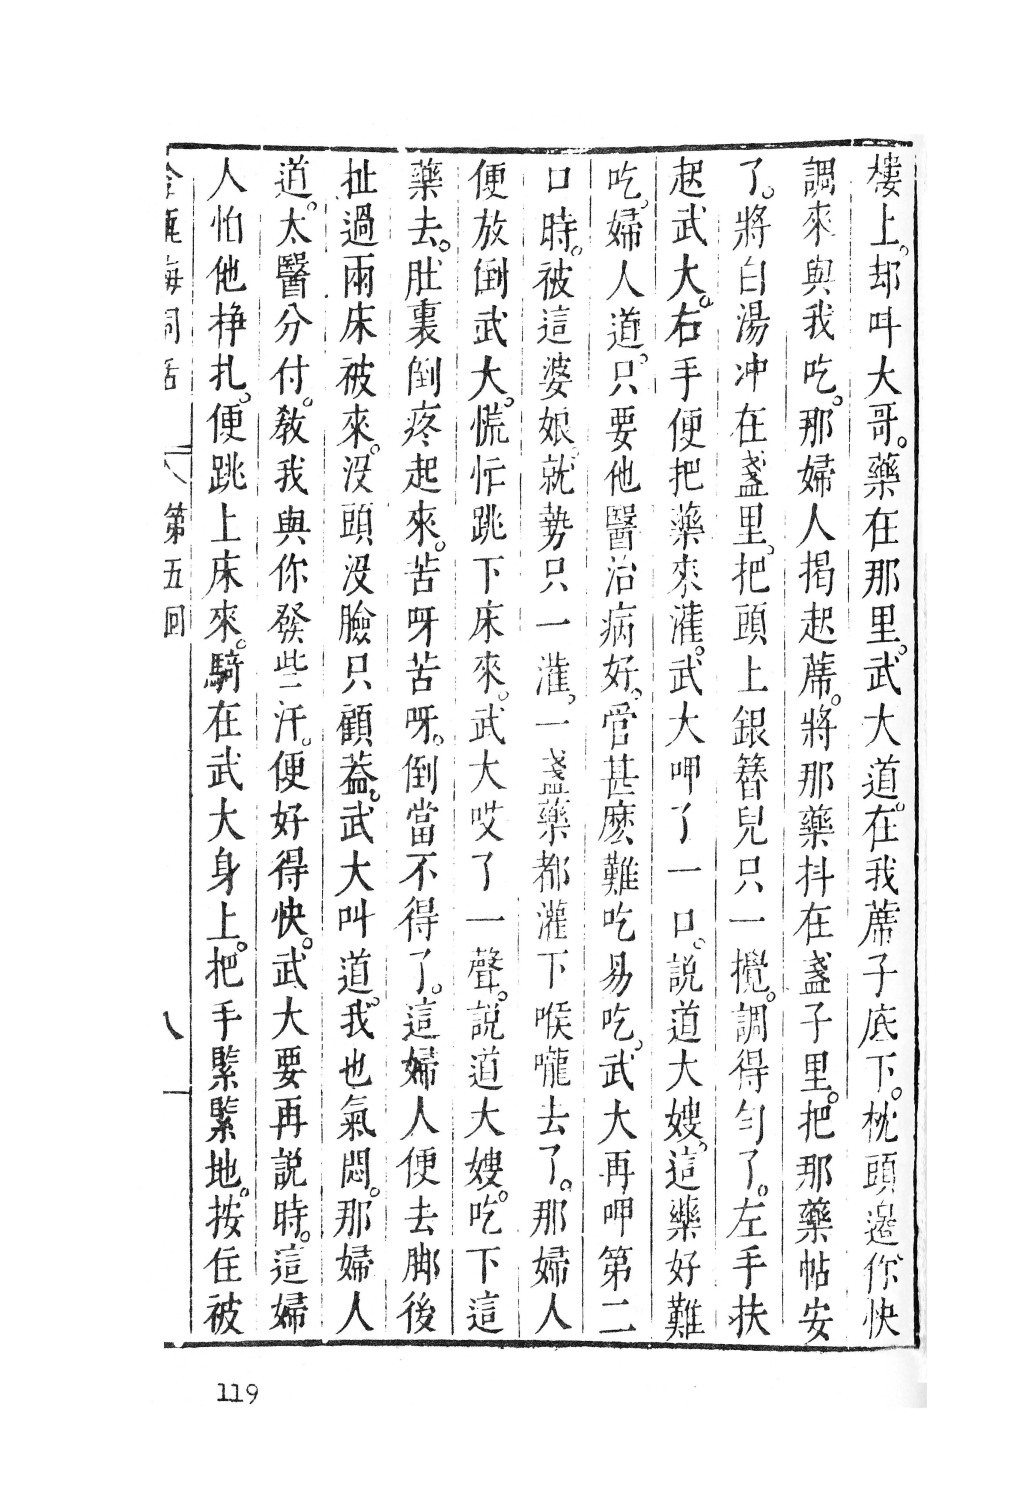 樓上。却叫大哥。藥在那里。武大道。在我蓆子底下。枕頭邊。你快
調來與我吃。那婦人揭起蓆。將那藥抖在盞子里。把那藥帖安
了。將白湯冲在盞里。把頭上銀簪兒只一攪。調得匀了。左手扶
起武大。右手便把藥來灌。武大呷了一口。說道大嫂。這藥好難
吃。婦人道。只要他醫治病好。管甚麽難吃易吃。武大再呷第二
口時。被這婆娘。就勢只一灌。一盞藥都灌下喉嚨去了。那婦人
便放倒武大。慌忙跳下床來。武大哎了一聲。說道大嫂。吃下這
藥去。肚裏倒疼起來。苦呀苦呀。倒當不得了。這婦人便去脚後
扯過兩床被來。没頭没臉只顧葢。武大叫道。我也氣悶。那婦人
道。太醫分付。教我與你發些汗。便好得快。武大要再説時。這婦
人怕他掙扎。便跳上床來。騎在武大身上。把手緊緊地。按住被
金瓶梅詞話 第五回 八
119